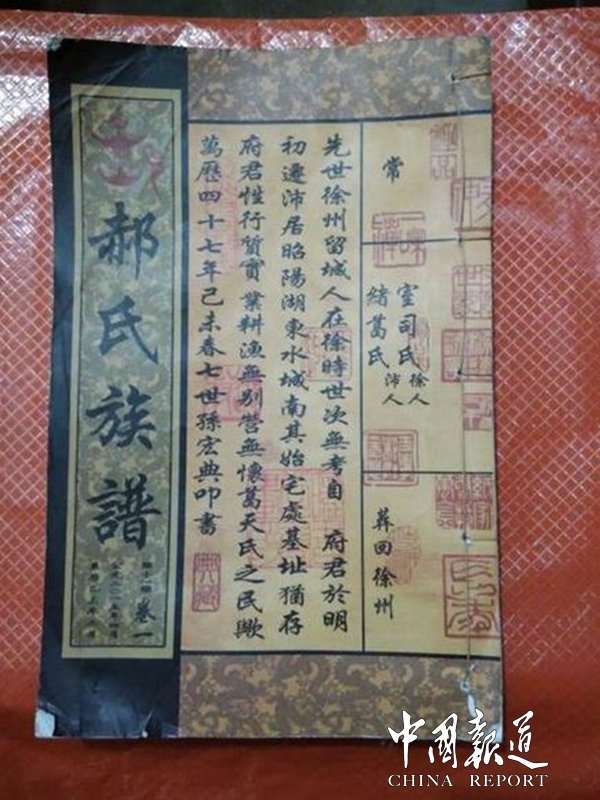 郝氏族譜
卷一
常
室司氏徐人
緒葛氏沛人
葬回徐州
先世徐州留城人在徐時世次無考自 府君於明
初遷沛居昭陽湖東水城南其始宅處基址猶存
府君性行質實業耕漁無別營無懷葛天氏之民歟
萬歷四十七年己未春七世孫宏典叩書
中國報道
CHINA REPORT